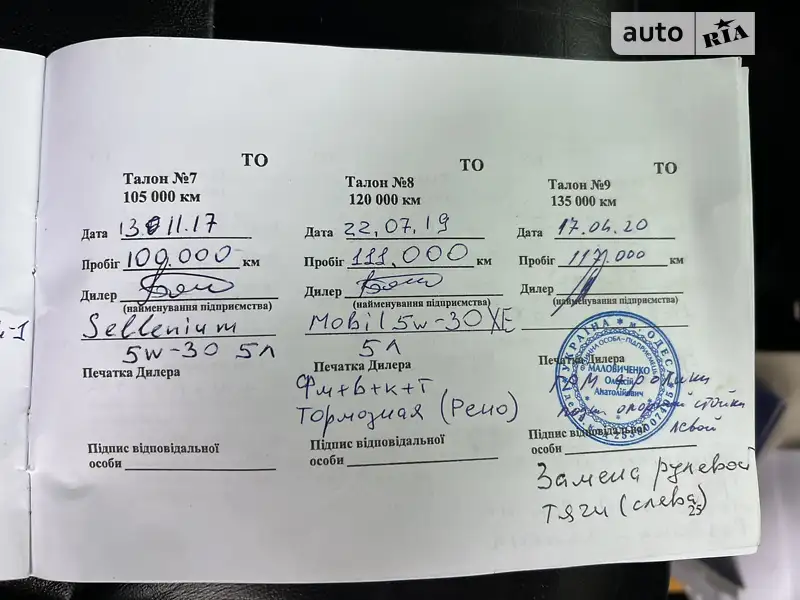 auto RIA
ТО
Талон №7
105 000 км
Дата 13.11.17
Пробіг 109.000 км
Дилер
(найменування підприємства)
Sellenium
5w-30 5л
Печатка Дилера
Підпис відповідальної
особи
ТО
Талон №8
120 000 км
Дата 22.07.19
Пробіг 111.000 км
Дилер
(найменування підприємства)
Mobil 5w-30 XE
5л
Печатка Дилера
Фм+в+к+т
Тормозная (Рено)
Підпис відповідальної
особи
ТО
Талон №9
135 000 км
Дата 17.04.20
Пробіг 117.000 км
Дилер
(найменування підприємства)
Печатка Дилера
УКРАЇНА * м. ОДЕСА
МАЛОВИЧЕНКО
Олексій
Анатолійович
опорной стойки
левой
Підпис відповідальної
особи
Замена рулевой
тяги (слева)
25